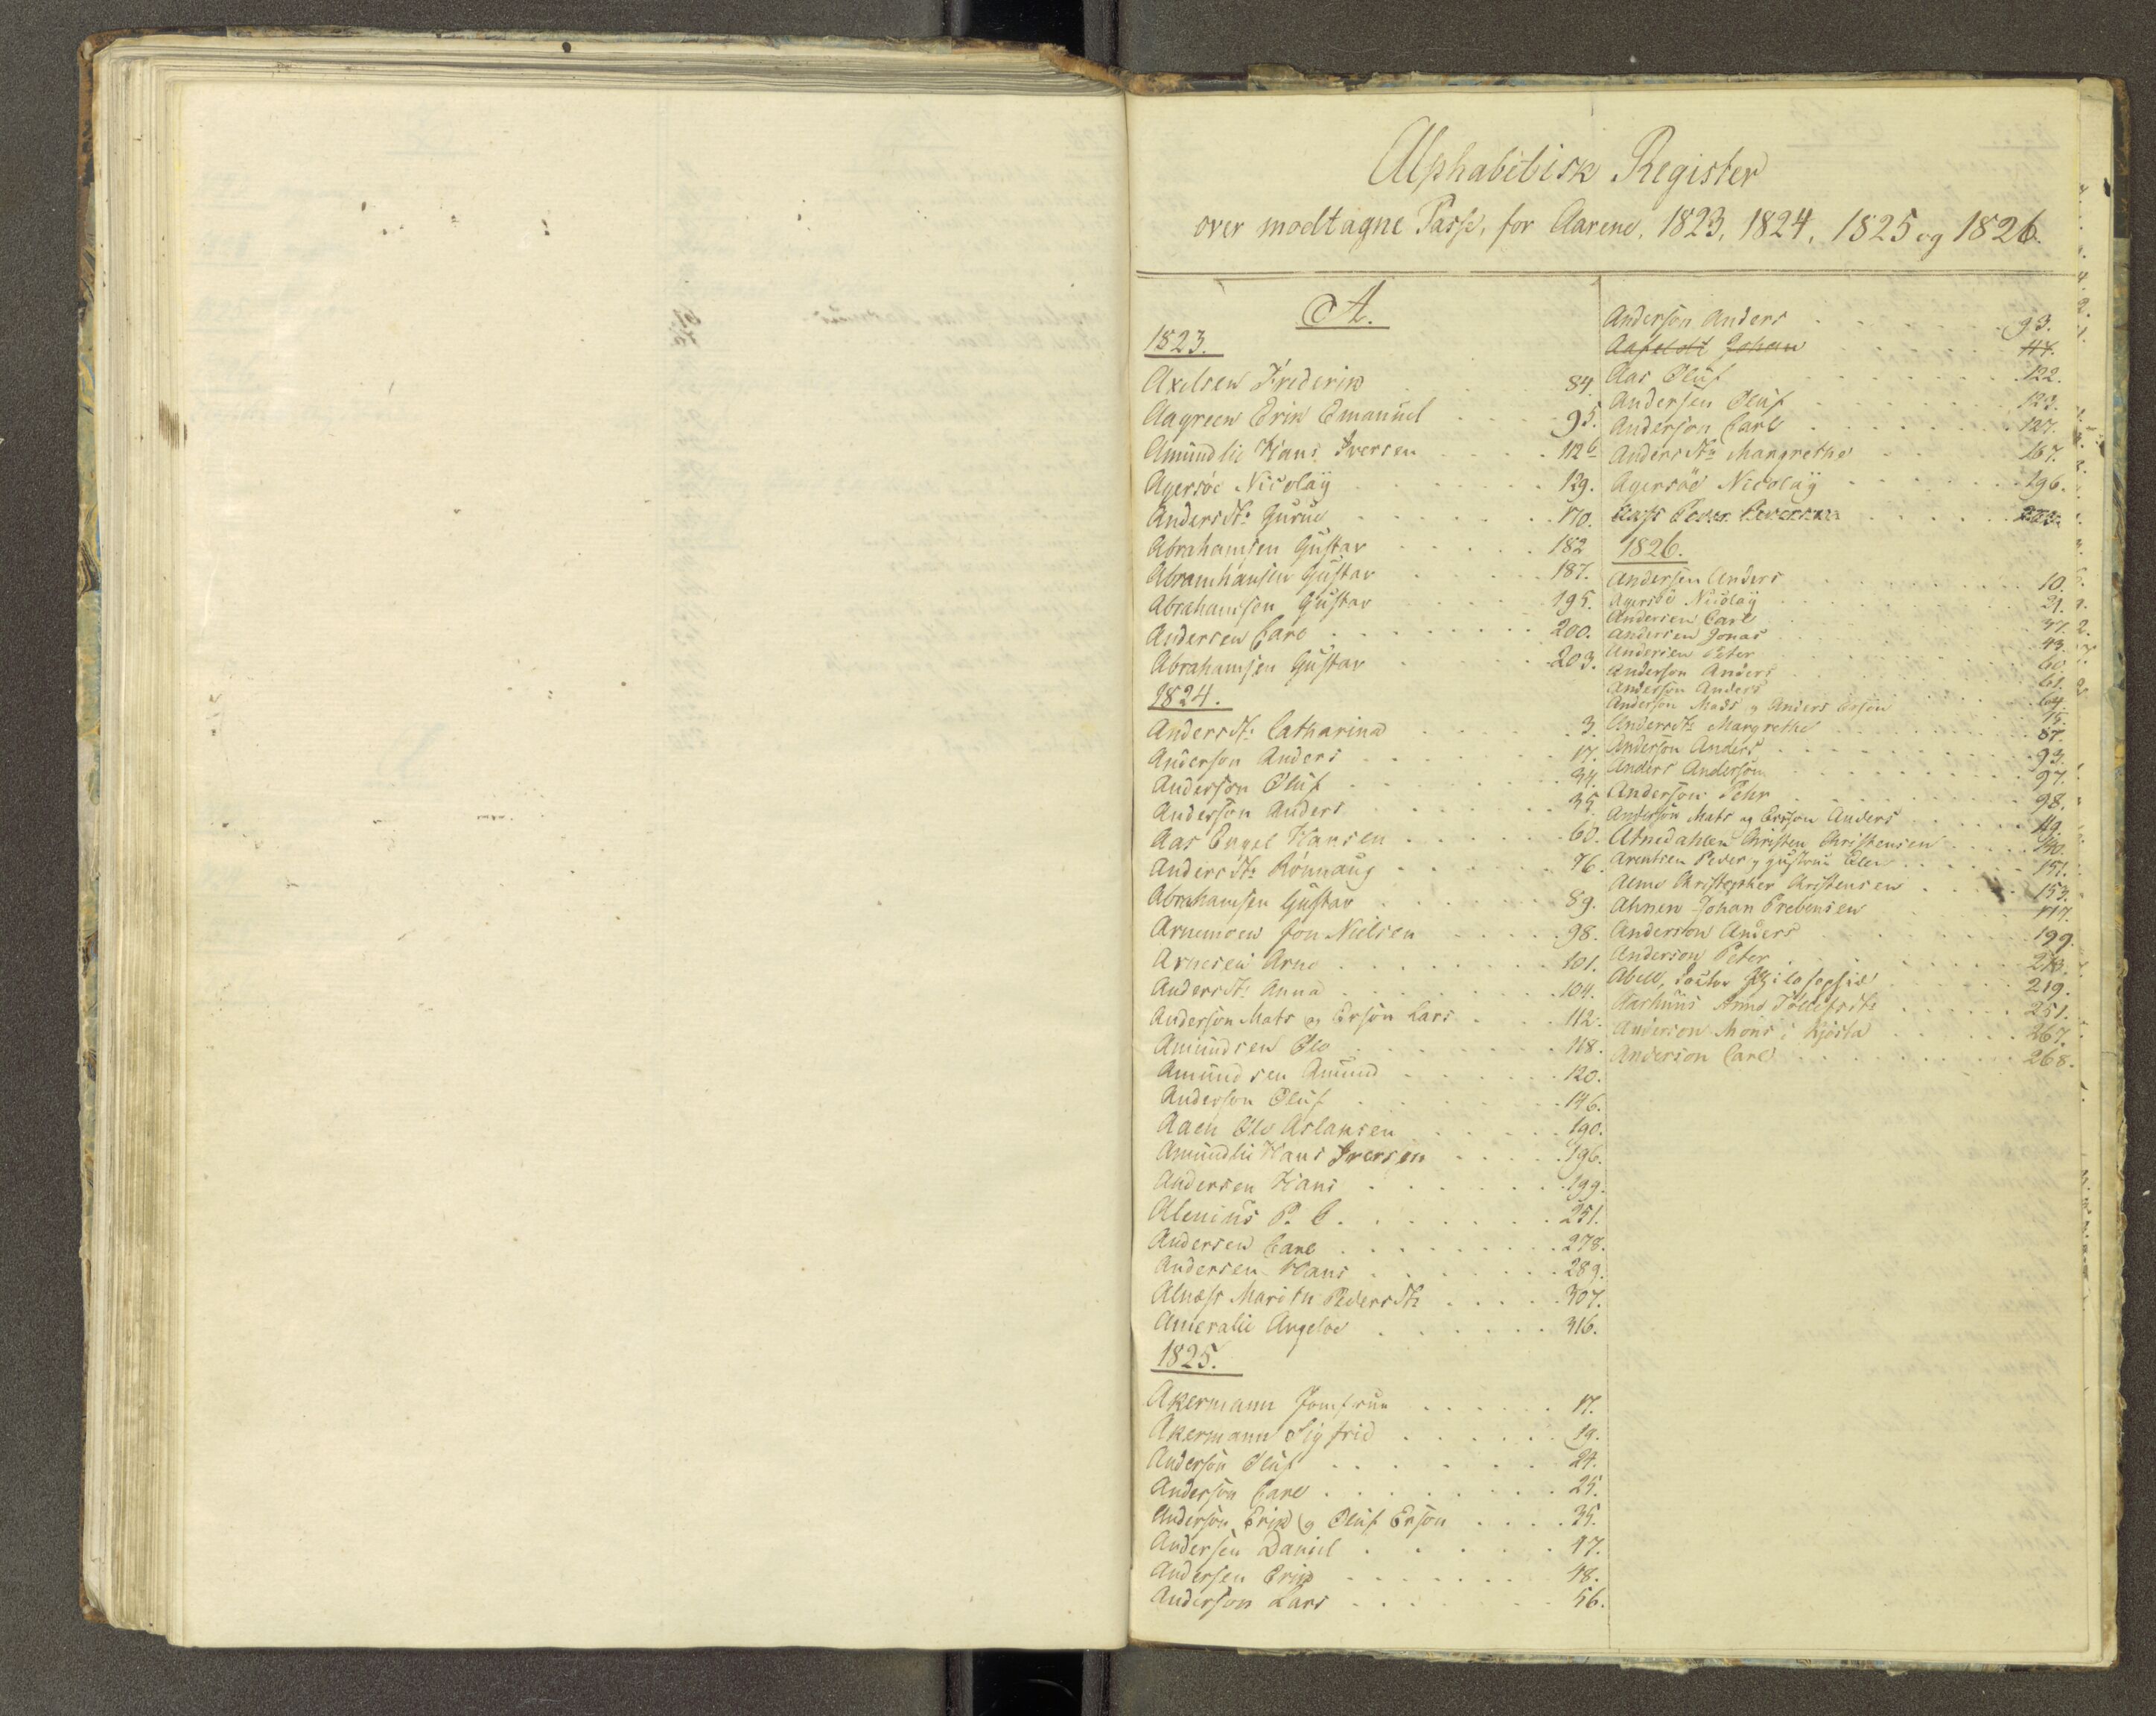 Alphabetisk Register
over modtagne Passe, for Aarene, 1823, 1824, 1825 og 1826.
A.
1823.
Axelsen Frederik 84.
Aagreen Erik Emanuel 95.
Amundlie Hans Iversen 112b
Agersöe Nicolaÿ 129.
Andersdtr Gurue 170.
Abrahamsen Gustav 182
Abramhansen Gustav 187.
Abrahamsen Gustav 195.
Andersen Carl 200.
Abrahamsen Gustav 203.
1824.
Andersdtr Catharina 3.
Anderson Anders 17.
Anderson Oluf 34.
Anderson Anders 35.
Aas Engel Hansen 60.
Andersdtr Rönnaug 76.
Abrahamsen Gustav 89.
Arnemoen Jon Nielsen 98.
Arnesen Arne 101.
Andersdtr Anna 104.
Anderson Mats og Erson Lars 112.
Amundsen Ole 118.
Amundsen Amund 120.
Anderson Oluf 146.
Aaen Ole Aslaksen 190.
Amundlie Hans Iversen 196.
Andersen Hans 199.
Alenius P. C. 251.
Andersen Carl 278.
Andersen Hans 289.
Alness Marithe Pedersdtr 307.
Ameralie Angeloe 316.
1825.
Akermann Jomfrue 17.
Akermann Sigfrid 19.
Anderson Oluf 24.
Anderson Carl 25.
Anderson Erik og Oluf Erson 35.
Andersen Daniel 47.
Andersen Erik 48.
Anderson Lars 56.
Anderson Anders 93.
Aafeldt Johan 117.
Aas Oluf 122.
Andersen Oluf 123.
Anderson Carl 127.
Andersdtr Mangrethe 167.
Agersöe Nicolaÿ 196.
Aass Peder Pedersen
1826.
Andersen Anders 10.
Agersöe Nicolaÿ 21.
Andersen Carl 37.
Andersen Jonas 43.
Andersen Peter 60.
Anderson Anders 61.
Anderson Anders 64.
Anderson Mads og Anders Erson 75.
Andersdtr Margrethe 87.
Anderson Anders 93.
Anders Anderson 97.
Anderson Pehr 98.
Anderson Mats og Ersson Anders 119.
Arnedahlen Christen Christensen 140.
Arentsen Peder og Hustrue Elen 151.
Alme Christopher Christensen 153.
Ahnen Johan Prebensen 177.
Anderson Anders 199.
Anderson Peter 213.
Abell, Doctor Philosophiæ 219.
Aarhuus Anne Tollefsdtr 251.
Anderson Mons i Kjösta 267.
Anderson Carl 268.